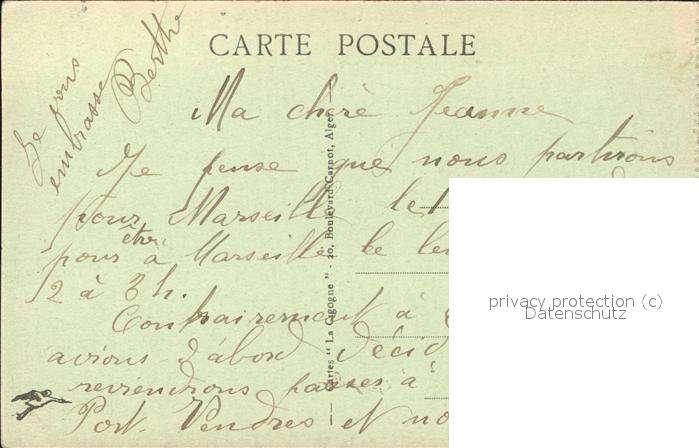 CARTE POSTALE
Je vous
embrasse
Berthe
Ma chère Jeanne
Je pense que nous partirons
pour Marseille le
pour être à Marseille le
2 à 3h.
Contrairement à
avions d'abord décid
reviendrons passer à
Port-Vendres et no
Cartes " La Cigogne " - 20, Boulevard Carnot, Alger.
privacy protection (c)
Datenschutz